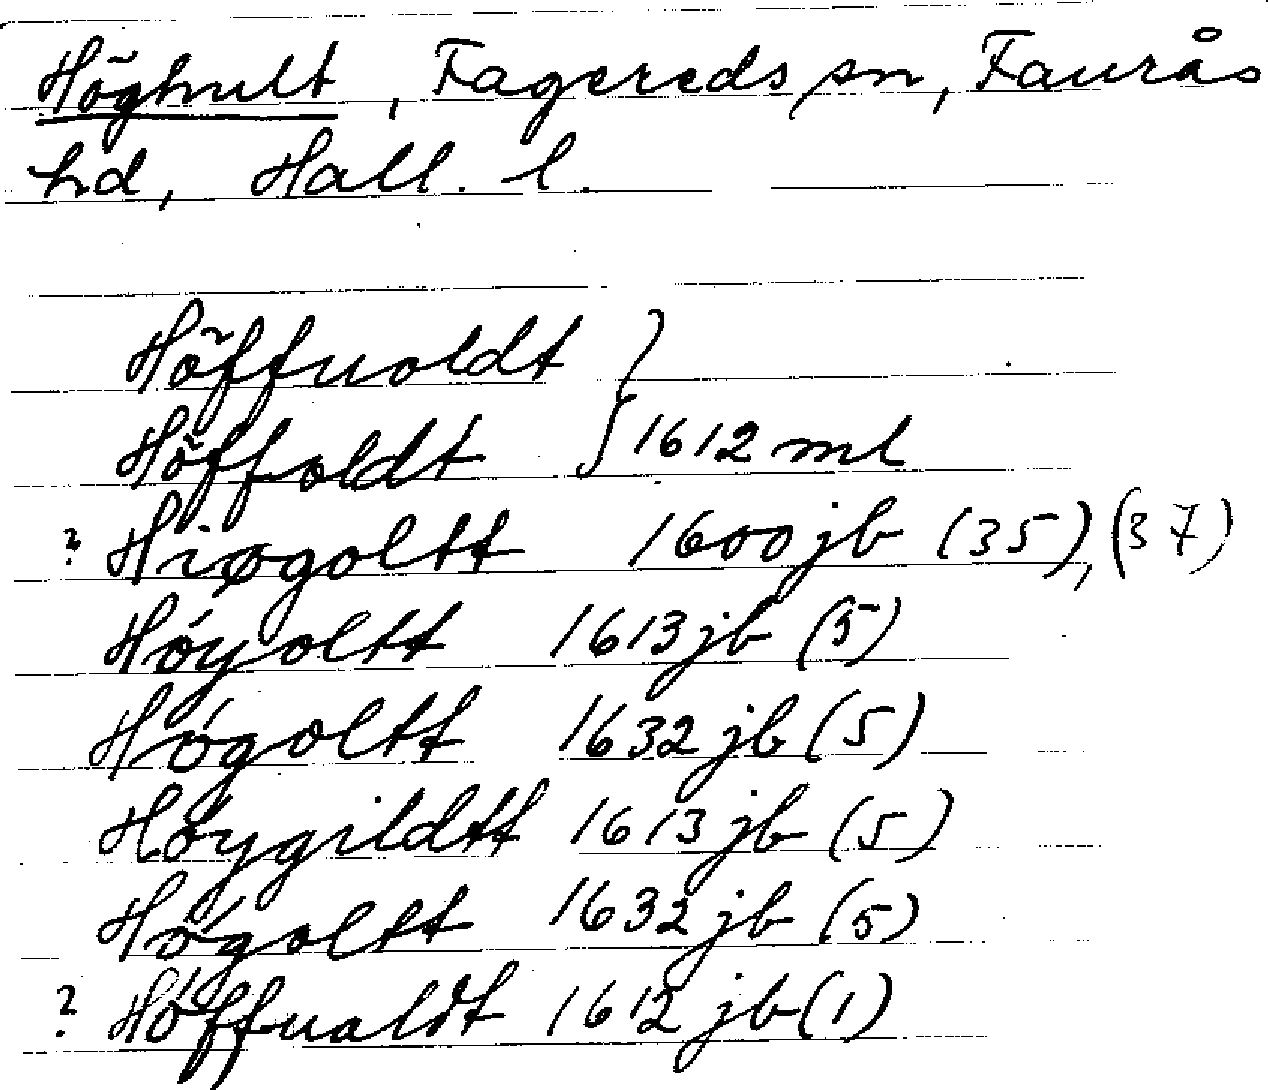 Höghult, Fagereds sn, Faurås
hd, Hall. l.
Höffuoldt
Höffoldt } 1612 ml
? Hiøgoltt 1600 jb (35), (37)
Høyoltt 1613 jb (5)
Høgoltt 1632 jb (5)
Høygildtt 1613 jb (5)
Høgoltt 1632 jb (5)
? Høffualdt 1612 jb (1)